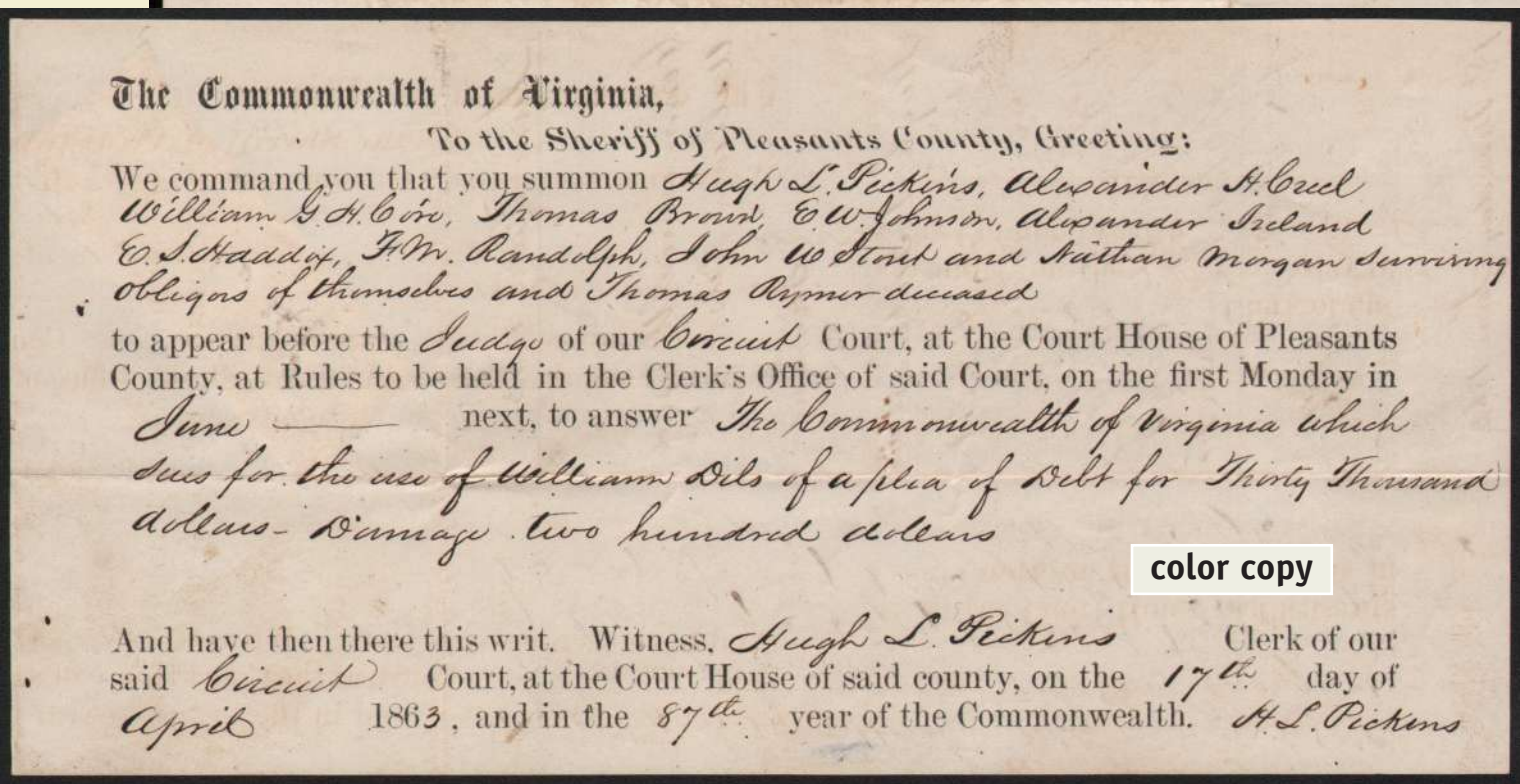 The Commonwealth of Virginia,
To the Sheriff of Pleasants County, Greeting:
We command you that you summon Hugh L. Pickens, Alexander H. Creel
William G. H. Core, Thomas Brown, E. W. Johnson, Alexander Ireland
E. S. Haddox, F. M. Randolph, John W Stout and Nathan Morgan surviving
obligors of themselves and Thomas Rymer deceased
to appear before the Judge of our Circuit Court, at the Court House of Pleasants
County, at Rules to be held in the Clerk's Office of said Court, on the first Monday in
June — next, to answer The Commonwealth of Virginia which
sues for the use of William Dils of a plea of Debt for Thirty Thousand
dollars - Damage two hundred dollars
color copy
And have then there this writ. Witness, Hugh L. Pickens Clerk of our
said Circuit Court, at the Court House of said county, on the 17th day of
April 1863, and in the 87th year of the Commonwealth. H. L. Pickens